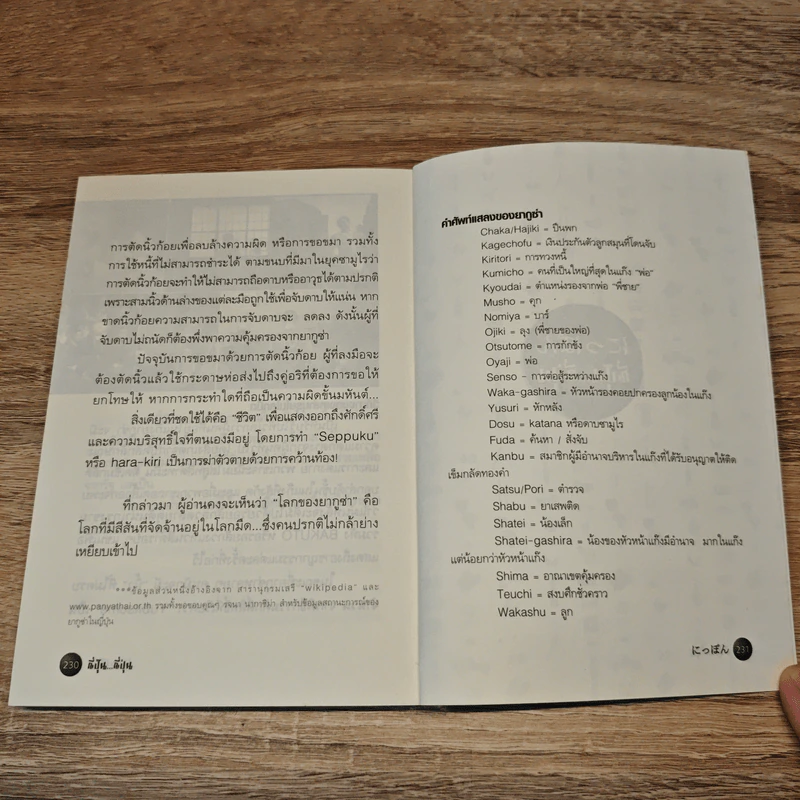 การตัดนิ้วก้อยเพื่อลบล้างความผิด หรือการขอขมา รวมทั้ง
การใช้หนี้ที่ไม่สามารถชำระได้ ตามขนบที่มีมาในยุคซามูไรว่า
การตัดนิ้วก้อยจะทำให้ไม่สามารถถือดาบหรืออาวุธได้ตามปรกติ
เพราะสามนิ้วด้านล่างของแต่ละมือถูกใช้เพื่อจับดาบให้แน่น หาก
ขาดนิ้วก้อยความสามารถในการจับดาบจะ ลดลง ดังนั้นผู้ที่
จับดาบไม่ถนัดก็ต้องพึ่งพาความคุ้มครองจากยากูซ่า
ปัจจุบันการขอขมาด้วยการตัดนิ้วก้อย ผู้ที่ลงมือจะ
ต้องตัดนิ้วแล้วใช้กระดาษห่อส่งไปถึงคู่อริที่ต้องการขอให้
ยกโทษให้ หากการกระทำใดที่ถือเป็นความผิดขั้นมหันต์...
สิ่งเดียวที่ชดใช้ได้คือ “ชีวิต” เพื่อแสดงออกถึงศักดิ์ศรี
และความบริสุทธิ์ใจที่ตนเองมีอยู่ โดยการทำ “Seppuku”
หรือ hara-kiri เป็นการฆ่าตัวตายด้วยการคว้านท้อง!
ที่กล่าวมา ผู้อ่านคงจะเห็นว่า “โลกของยากูซ่า” คือ
โลกที่มีสีสันที่จัดจ้านอยู่ในโลกมืด...ซึ่งคนปรกติไม่กล้าย่าง
เหยียบเข้าไป
***ข้อมูลส่วนหนึ่งอ้างอิงจาก สารานุกรมเสรี “wikipedia” และ
www.panyathai.or.th รวมทั้งขอขอบคุณๆ วจนา นาภาชิม่า สำหรับข้อมูลสถานะการณ์ของ
ยากูซ่าในญี่ปุ่น
230 ยี่ปุ่น...ยี่ปุ่น
คำศัพท์แสลงของยากูซ่า
Chaka/Hajiki = ปืนพก
Kagechofu = เงินประกันตัวลูกสมุนที่โดนจับ
Kiritori = การทวงหนี้
Kumicho = คนที่เป็นใหญ่ที่สุดในแก๊ง “พ่อ”
Kyoudai = ตำแหน่งรองจากพ่อ “พี่ชาย”
Musho = คุก
Nomiya = บาร์
Ojiki = ลุง (พี่ชายของพ่อ)
Otsutome = การกักขัง
Oyaji = พ่อ
Senso - การต่อสู้ระหว่างแก๊ง
Waka-gashira = หัวหน้ารองคอยปกครองลูกน้องในแก๊ง
Yusuri = หักหลัง
Dosu = katana หรือดาบซามูไร
Fuda = ค้นหา / สั่งจับ
Kanbu = สมาชิกผู้มีอำนาจบริหารในแก๊งที่ได้รับอนุญาตให้ติด
เข็มกลัดทองคำ
Satsu/Pori = ตำรวจ
Shabu = ยาเสพติด
Shatei = น้องเล็ก
Shatei-gashira = น้องของหัวหน้าแก๊งมีอำนาจ มากในแก๊ง
แต่น้อยกว่าหัวหน้าแก๊ง
Shima = อาณาเขตคุ้มครอง
Teuchi = สงบศึกชั่วคราว
Wakashu = ลูก
にっぽん 231